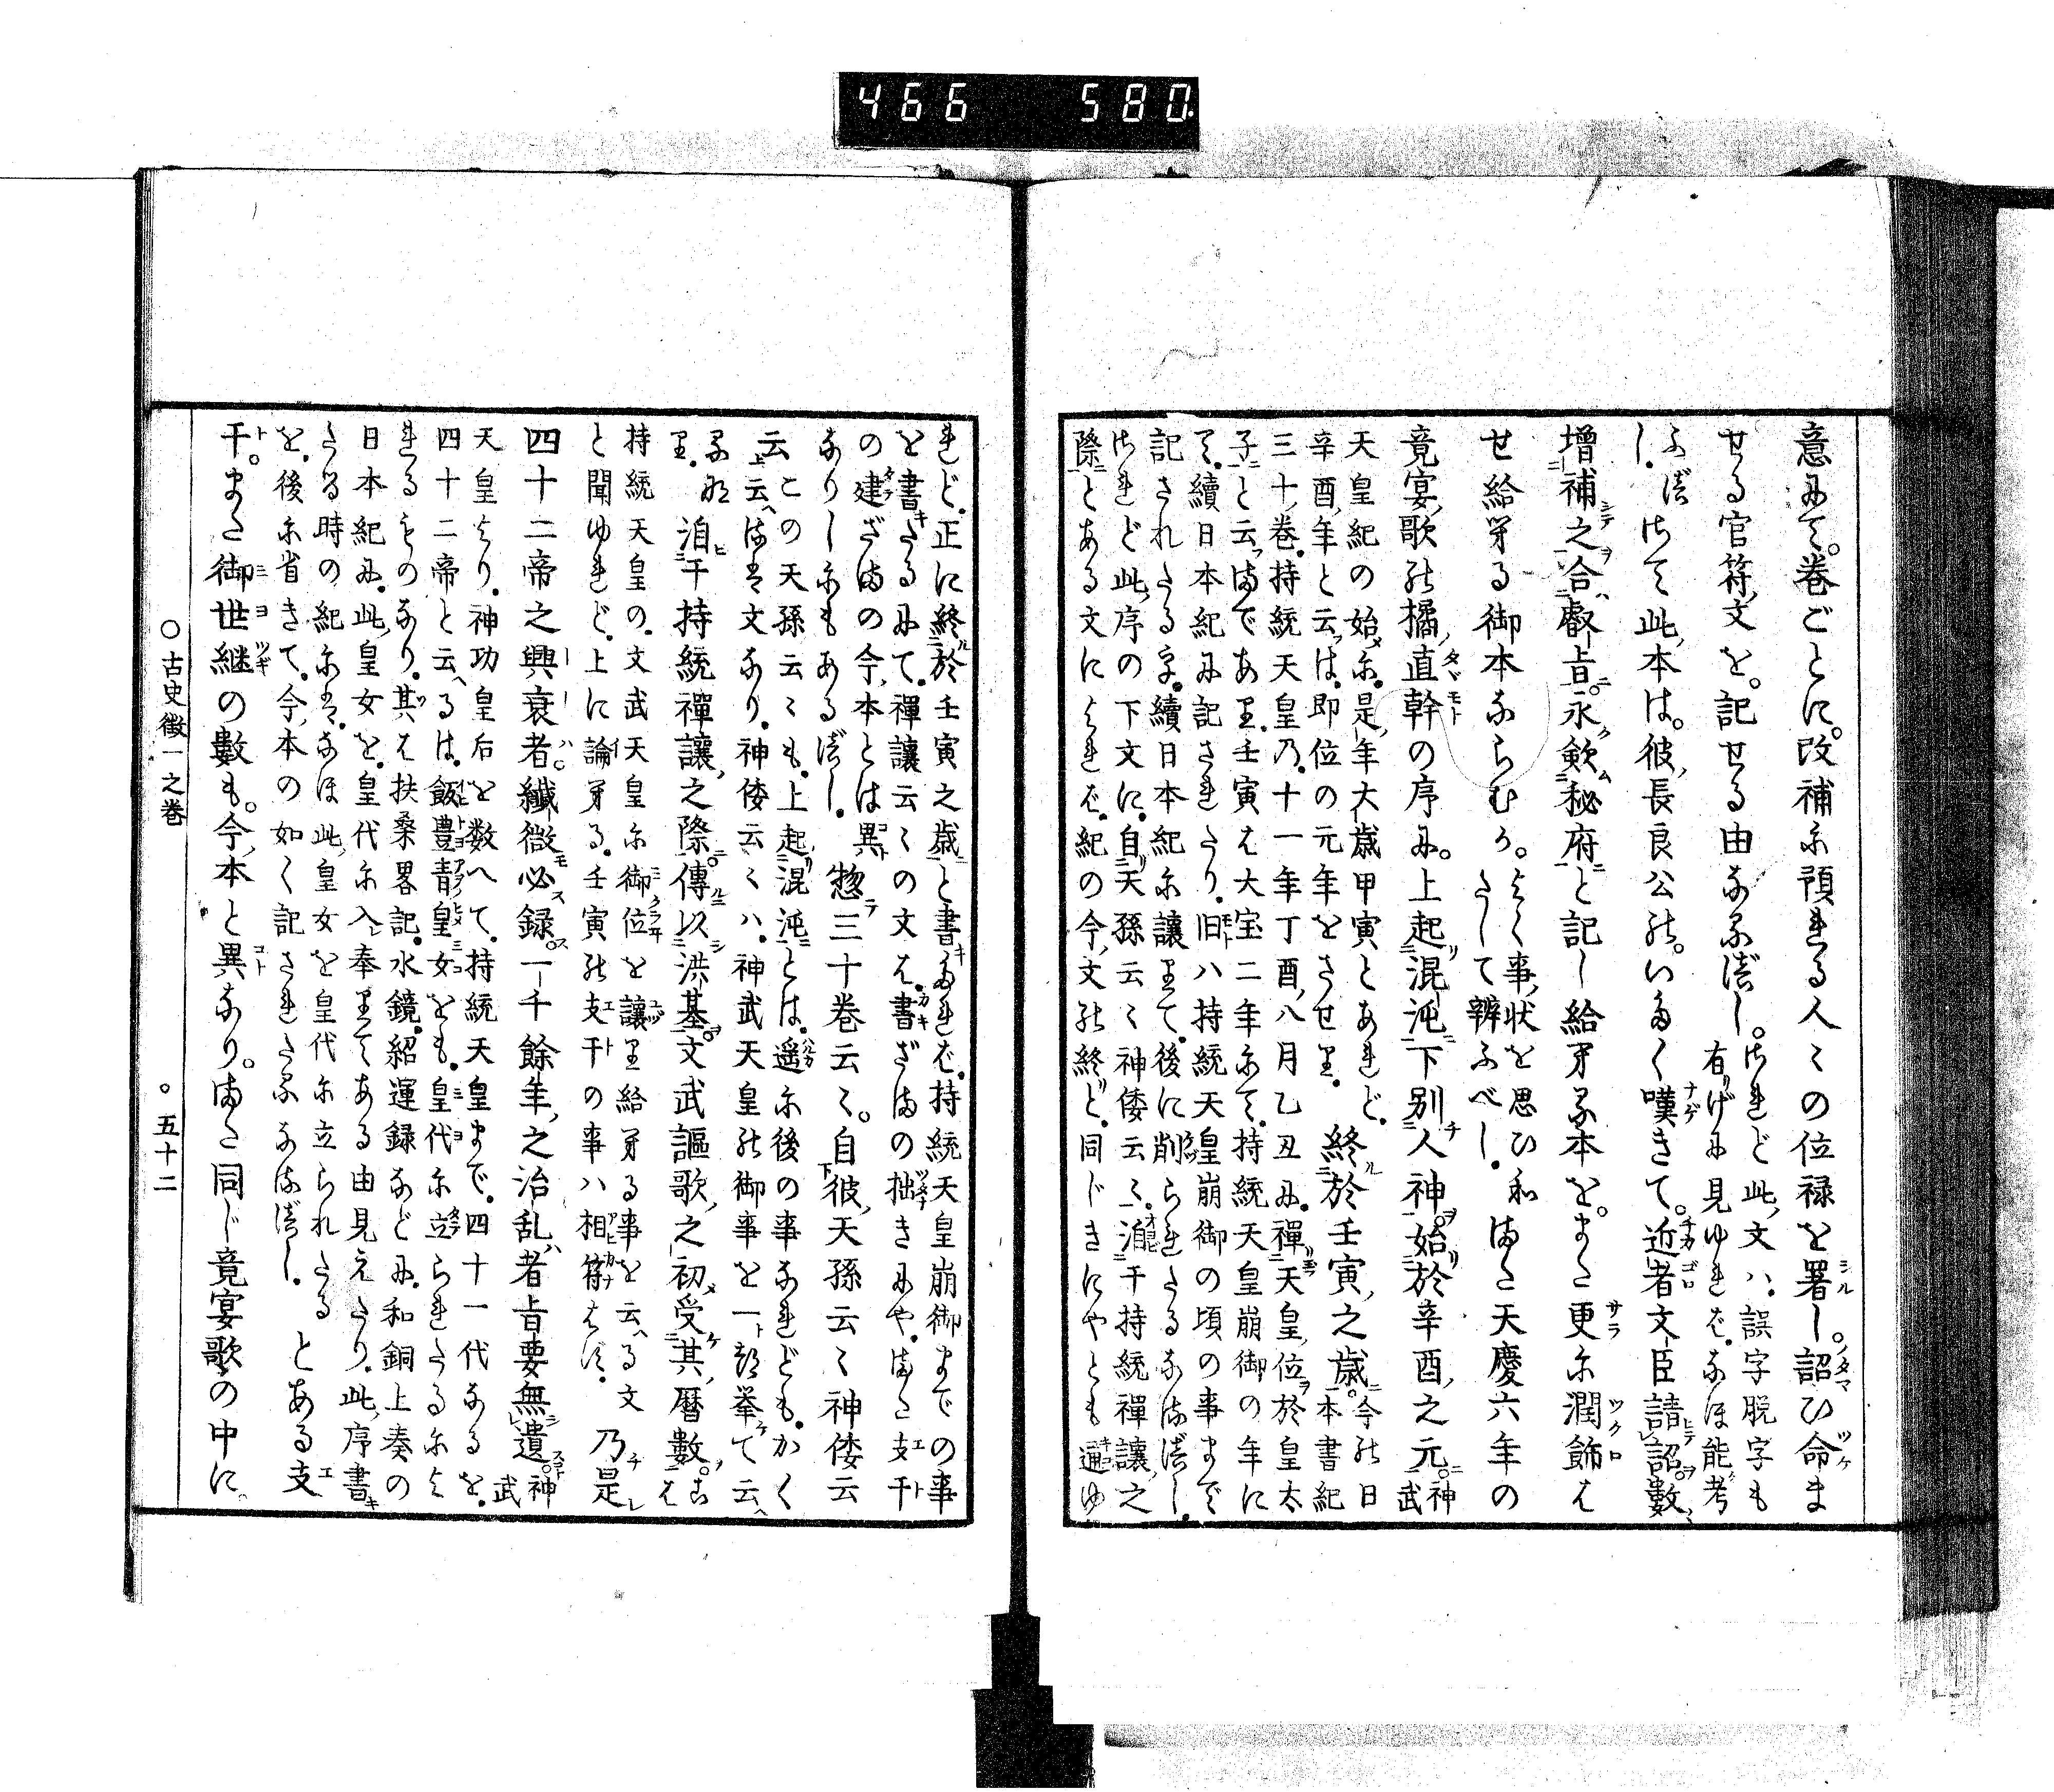 466 580
意にて。巻ごとに。改補に預れる人〻の位禄を署し。詔ひ命ま
せる官符文を。記せる由なるべし。
されど此文ハ。誤字脱字も
有げに見ゆれば。なほ能考
ふべし。
さて此本は。彼長良公の。いたく嘆きて。近者文臣請詔數
増補之合叡旨。永歛秘府と記し給へる本を。また更に潤飾は
せ給へる御本ならむか。
よく事状を思ひ和
たして辨ふべし。
また天慶六年の
竟宴歌の橘直幹の序に。上起混沌下別人神。始於辛酉之元。
神武
天皇紀の始に。是年大歳甲寅とあれど。
辛酉年と云は。即位の元年をさせり。
終於壬寅之歳。
今の日
本書紀
三十巻。持統天皇乃。十一年丁酉八月乙丑に。禪天皇位於皇太
子と云まであり。壬寅は大宝二年にて。持統天皇崩御の年に
て。續日本紀に記されたり。旧ハ持統天皇崩御の頃の事まで
記されたる字。續日本紀に讓りて。後に削られたるなるべし。
されど此序の下文に。自天孫云〻神倭云〻。洎于持統禪讓之
際とある文によれば。紀の今文の終ど。同じきにやとも通ゆ
れど。正に終於壬寅之歳と書たれば。持統天皇崩御までの事
を書たるにて。禪讓云〻の文は。書ざまの拙きにや。また支干
の建ざまの今本とは異
なりしにもあるべし。
惣三十巻云〻。自彼天孫云〻神倭云
云
この天孫云〻も。上起混沌とは。遥に後の事なれども。かく
上云るは文なり。神倭云〻ハ。神武天皇の御事を一部挙て云
るなり。
洎于持統禪讓之際。傳以洪基。文武謳歌之初受其暦數。
こは
持統天皇の。文武天皇に御位を讓り給へる事を云る文
と聞ゆれど。上に論へる。壬寅の支干の事ハ相符はず。
乃是
四十二帝之興衰者。纎微必録。一千餘年之治乱者旨要無遺。
神武
天皇より。神功皇后を数へて。持統天皇まで。四十一代なるを。
四十二帝と云るは。飯豊青皇女をも。皇代に立られたるによ
れるものなり。其は扶桑畧記。水鏡。紹運録などに。和銅上奏の
日本紀に。此皇女を。皇代に入奉りてある由見えたり。此序書
たる時の紀には。なほ此皇女を皇代に立られたる
を。後に省きて。今本の如く記されたるなるべし。
とある支
干。また御世継の數も。今本と異なり。また同じ竟宴歌の中に。
○古史徴一之巻
○五十二